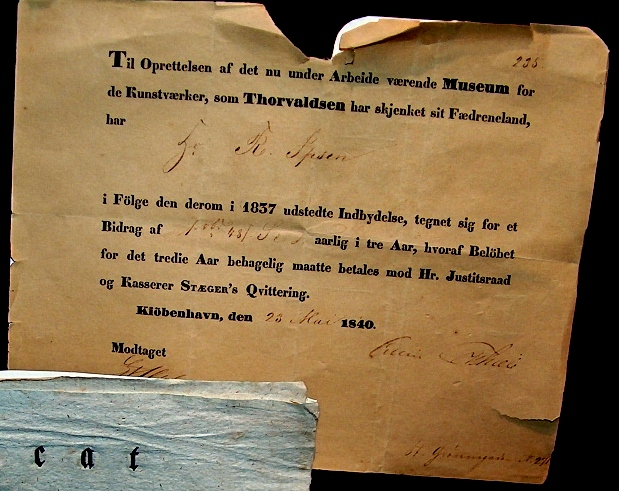 235
Til Oprettelsen af det nu under Arbeide værende Museum for
de Kunstværker, som Thorvaldsen har skjenket sit Fædreneland,
har
Hr R. Ipsen
i Fölge den derom i 1837 udstedte Indbydelse, tegnet sig for et
Bidrag af aarlig i tre Aar, hvoraf Belöbet
for det tredie Aar behagelig maatte betales mod Hr. Justitsraad
og Kasserer STÆGER'S Qvittering.
Kiöbenhavn, den 23 Mai 1840.
Modtaget
cat